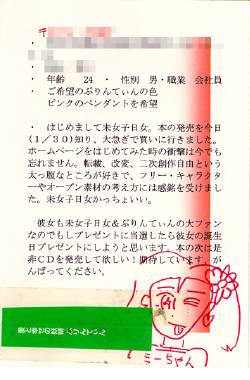 ・ 年齢　24 ・ 性別　男・職業　会社員
・ ご希望のぷりんてぃんの色
ピンクのペンダントを希望
・ はじめまして未女子日女。本の発売を今日
(1/30)知り、大急ぎで買いに行きました。
ホームページをはじめてみた時の衝撃は今でも
忘れません。転載、改変、二次創作自由という
太っ腹なところが好きで、フリー・キャラクタ
ーやオープン素材の考え方には感銘を受けまし
た。未女子日女かっちょいい。
彼女も未女子日女＆ぷりんてぃんの大ファン
なのでもしプレゼントに当選したら彼女の誕生
日プレゼントにしようと思います。本の次は是
非CDを発売して欲しい！期待しています。が
んばってください。
ミーちゃん